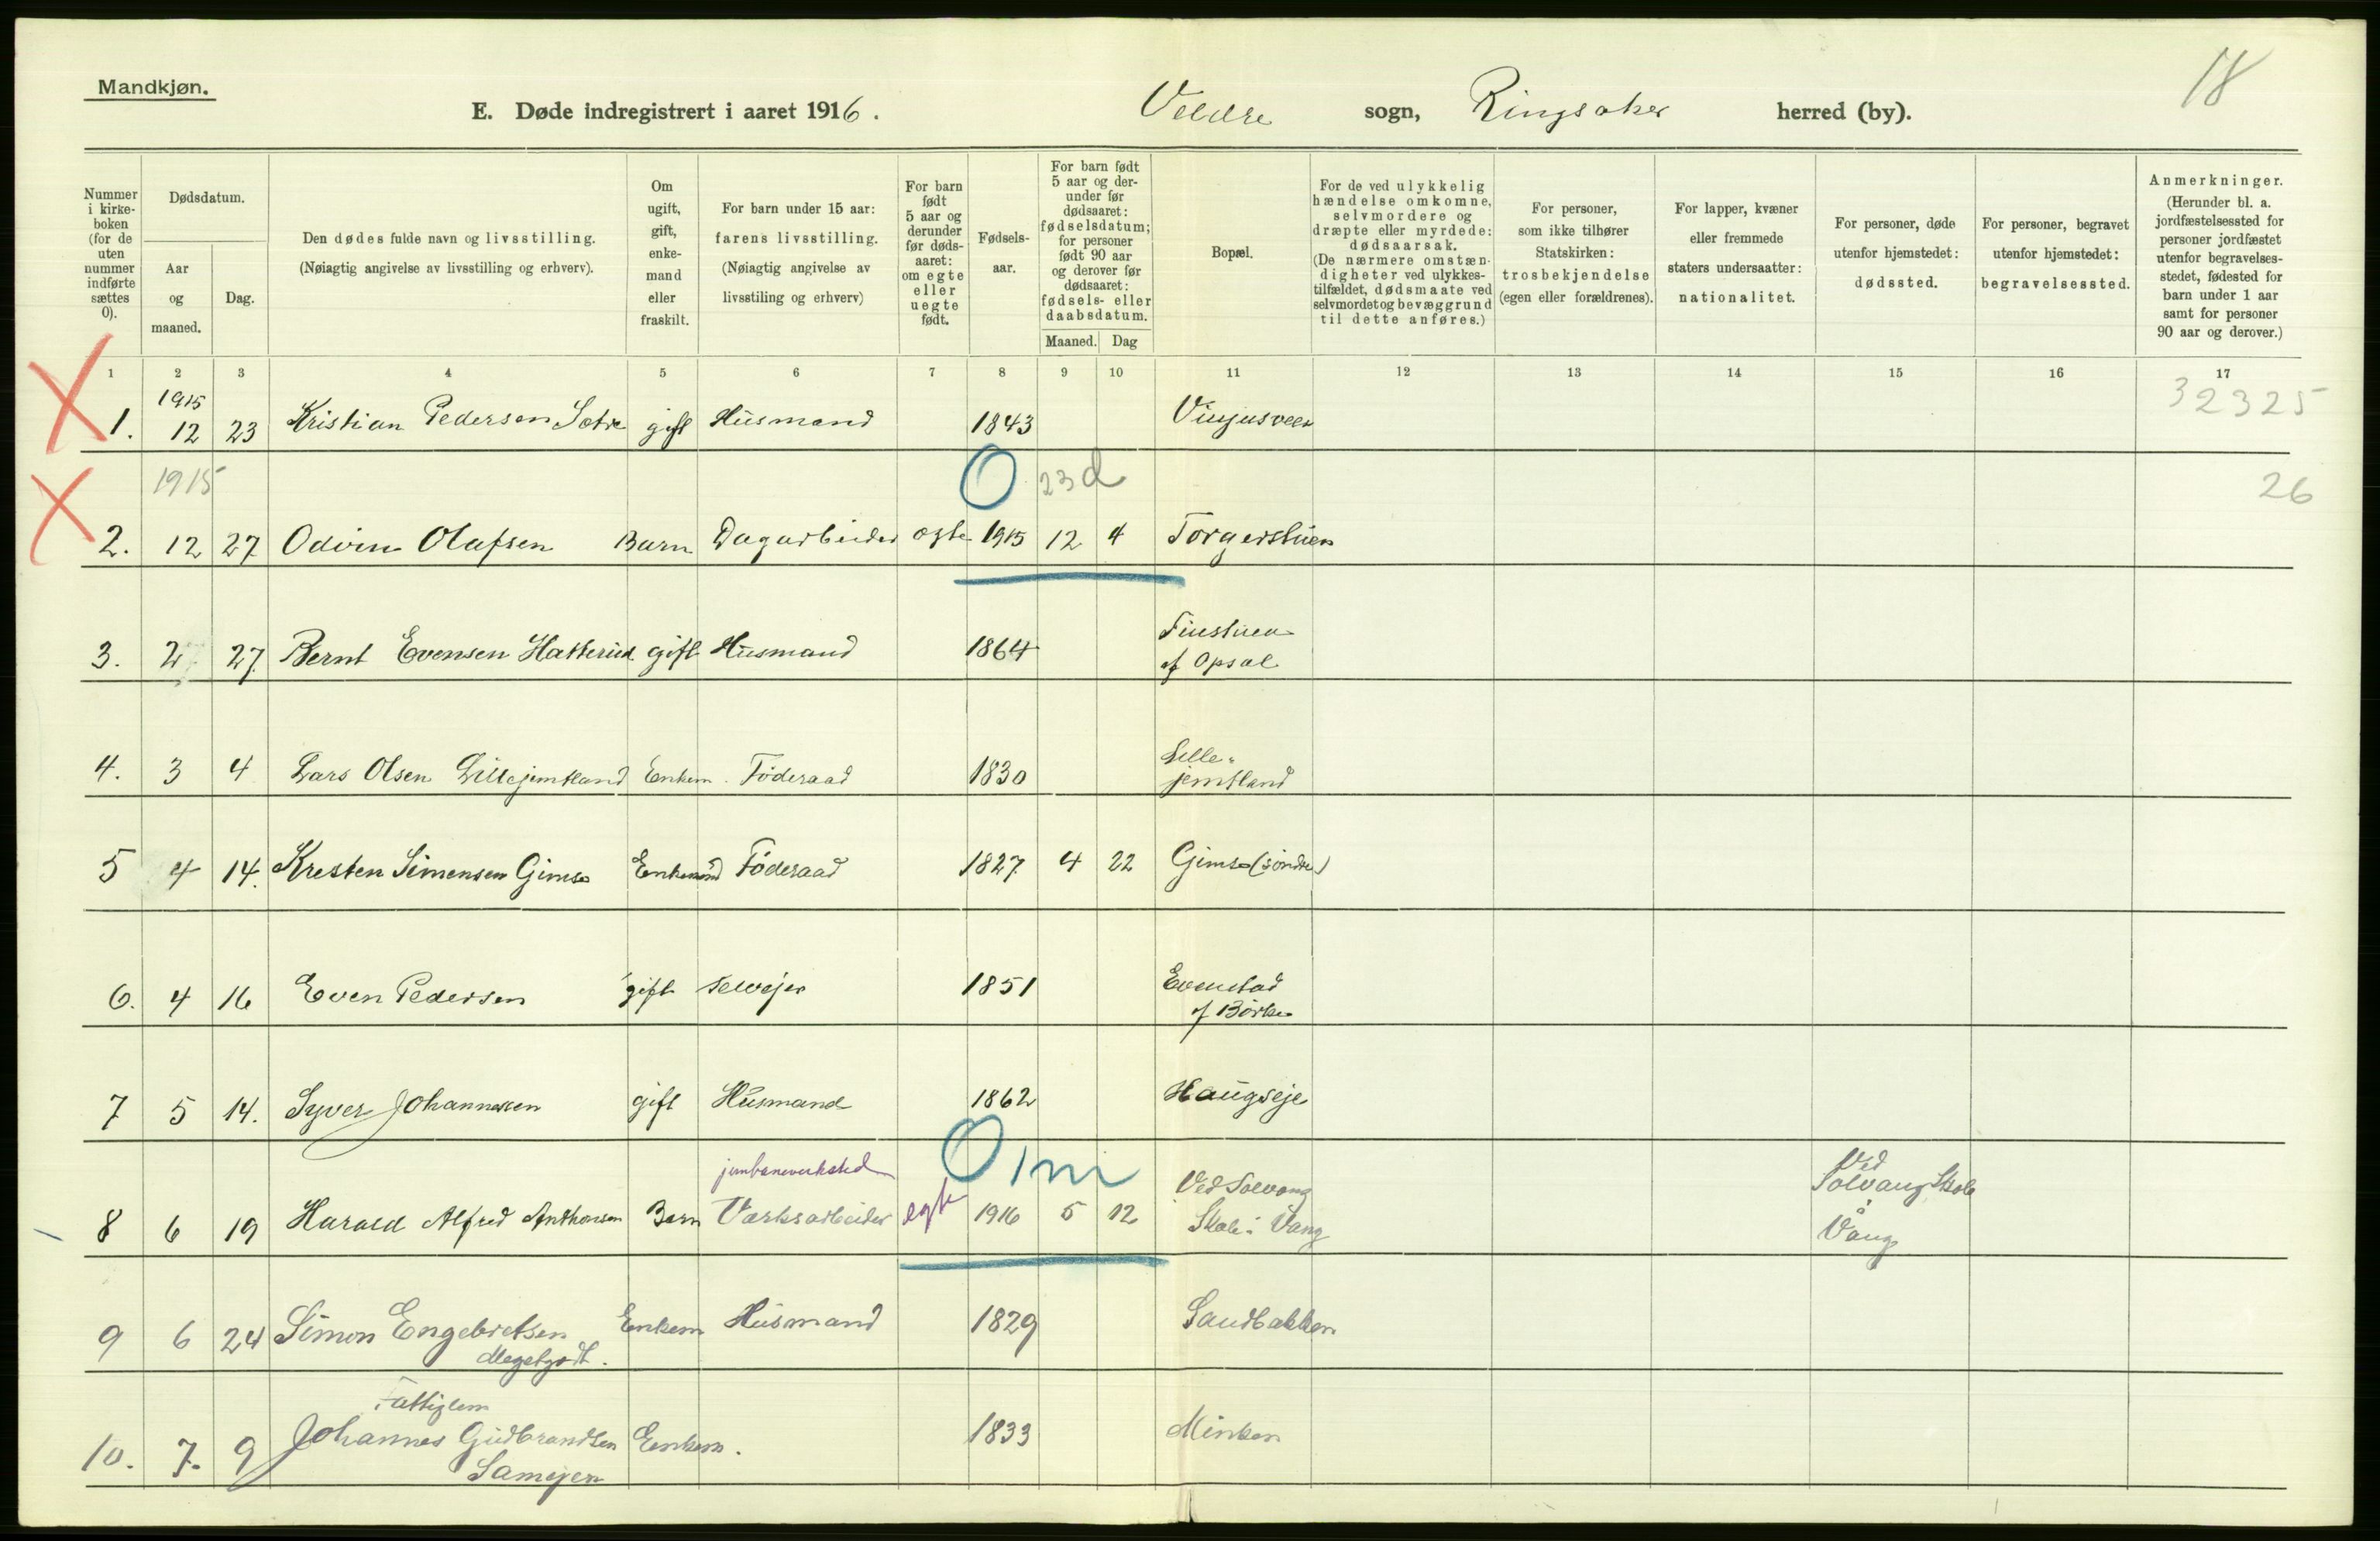 18
Mandkjøn.
E. Døde indregistrert i aaret 1916. Veldre sogn, Ringsaker herred (by).
Nummer i kirke-boken (for de uten nummer indførte sættes 0).
Dødsdatum.
Aar og maaned.
Dag.
Den dødes fulde navn og livsstilling.
(Nøiagtig angivelse av livsstilling og erhverv).
Om ugift, gift, enke-mand eller fraskilt.
For barn under 15 aar: farens livsstilling.
(Nøiagtig angivelse av livsstiling og erhverv)
For barn født 5 aar og derunder før døds-aaret: om egte eller uegte født.
Fødsels-aar.
For barn født 5 aar og der-under før dødsaaret: fødselsdatum; for personer født 90 aar og derover før dødsaaret: fødsels- eller daabsdatum.
Maaned. Dag
Bopæl.
For de ved ulykkelig hændelse omkomne, selvmordere og dræpte eller myrdede: dødsaarsak.
(De nærmere omstæn-digheter ved ulykkes-tilfældet, dødsmaate ved selvmordet og bevæggrund til dette anføres.)
For personer, som ikke tilhører Statskirken: trosbekjendelse (egen eller forældrenes).
For lapper, kvæner eller fremmede staters undersaatter: nationalitet.
For personer, døde utenfor hjemstedet: dødssted.
For personer, begravet utenfor hjemstedet: begravelsessted.
Anmerkninger.
(Herunder bl. a. jordfæstelsessted for personer jordfæstet utenfor begravelses-stedet, fødested for barn under 1 aar samt for personer 90 aar og derover.)
1 2 3 4 5 6 7 8 9 10 11 12 13 14 15 16 17
1915 32325
1. 12 23 Kristian Pedersen gift Husmand 1843
1915 0 23 d 26
2. 12 27 Odvin Olafsen Barn Dagarbeider egte 1915 12 4 Torgerstuen
3. 2 27. Bernt Evensen Hatterud gift Husmand 1864
af Opsal
4. 3 4 Lars Olsen Lillejemtland Enkem. Föderaad 1830 Lille-
jemtland
5 4 14. Kresten Simensen Gimse Enkemand Föderaad 1827 4 22 Gimse (söndre)
6. 4 16 Even Pedersen gift selvejer 1851 Evenstad
af Börke
7 5 14. Syver Johannessen gift Husmand 1862 Haugseje
jernbaneverksted 0 1 m Ved Solvang Ved Solvang Skole
8 6 19 Harald Alfred Anthonsen Barn Værksarbeider egte 1916 5 12 Skole i Vang i Vang
9 6 24 Simon Engebretsen Enkem Husmand 1829 Sandbakken
Fattiglem
10. 7. 9 Johannes Gudbrandsen Enkem. 1833